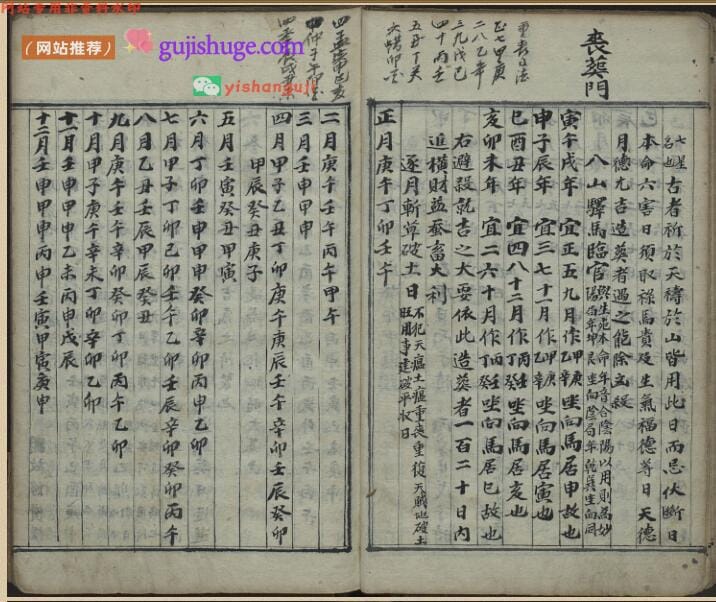 网站专用非资料水印
（网站推荐）
gujishuge.com
yishanguji
喪葬門
重喪日法
正七甲庚
二八乙辛
三九戊己
四十丙壬
五丑丁癸
七星
名也
古者祈於天禱於山皆用此日而忌伏斷日
本命六害日須取祿馬貴及生氣福德等日天德
月德尤吉造葬者遇之能除凶殺
八山驛馬臨官
寅午戌年 宜正五九月作乙甲辛庚坐向馬居申故也
申子辰年 宜三七十一月作乙甲辛庚坐向馬居寅也
巳酉丑年 宜四八十二月作丙丁壬癸坐向馬居亥也
亥卯未年 宜二六十月作丙丁壬癸坐向馬居巳故也
右避殺就吉之大要依此造葬者一百二十日內
進橫財益蚕畜大利
逐月斬草破土日
不犯天瘟土瘟重喪重復天賊地破土
旺用事建破平收日
正月庚午丁卯壬午
二月庚午壬午丙午甲午
三月壬申甲申
四月甲子乙丑丁卯庚午庚辰壬午辛卯壬辰癸卯
甲辰癸丑庚子
五月壬寅癸丑甲寅
六月丁卯壬申甲申癸卯辛卯丙申乙卯
七月甲子丁卯己卯壬午乙卯壬辰辛卯癸卯丙午
八月乙丑壬辰甲辰癸丑
九月庚午壬午辛卯癸卯丁卯丙午乙卯
十月甲子庚午辛未丁卯辛卯乙卯
十一月壬申甲申乙未丙申戊辰
十二月壬申甲申丙申壬寅甲寅庚申